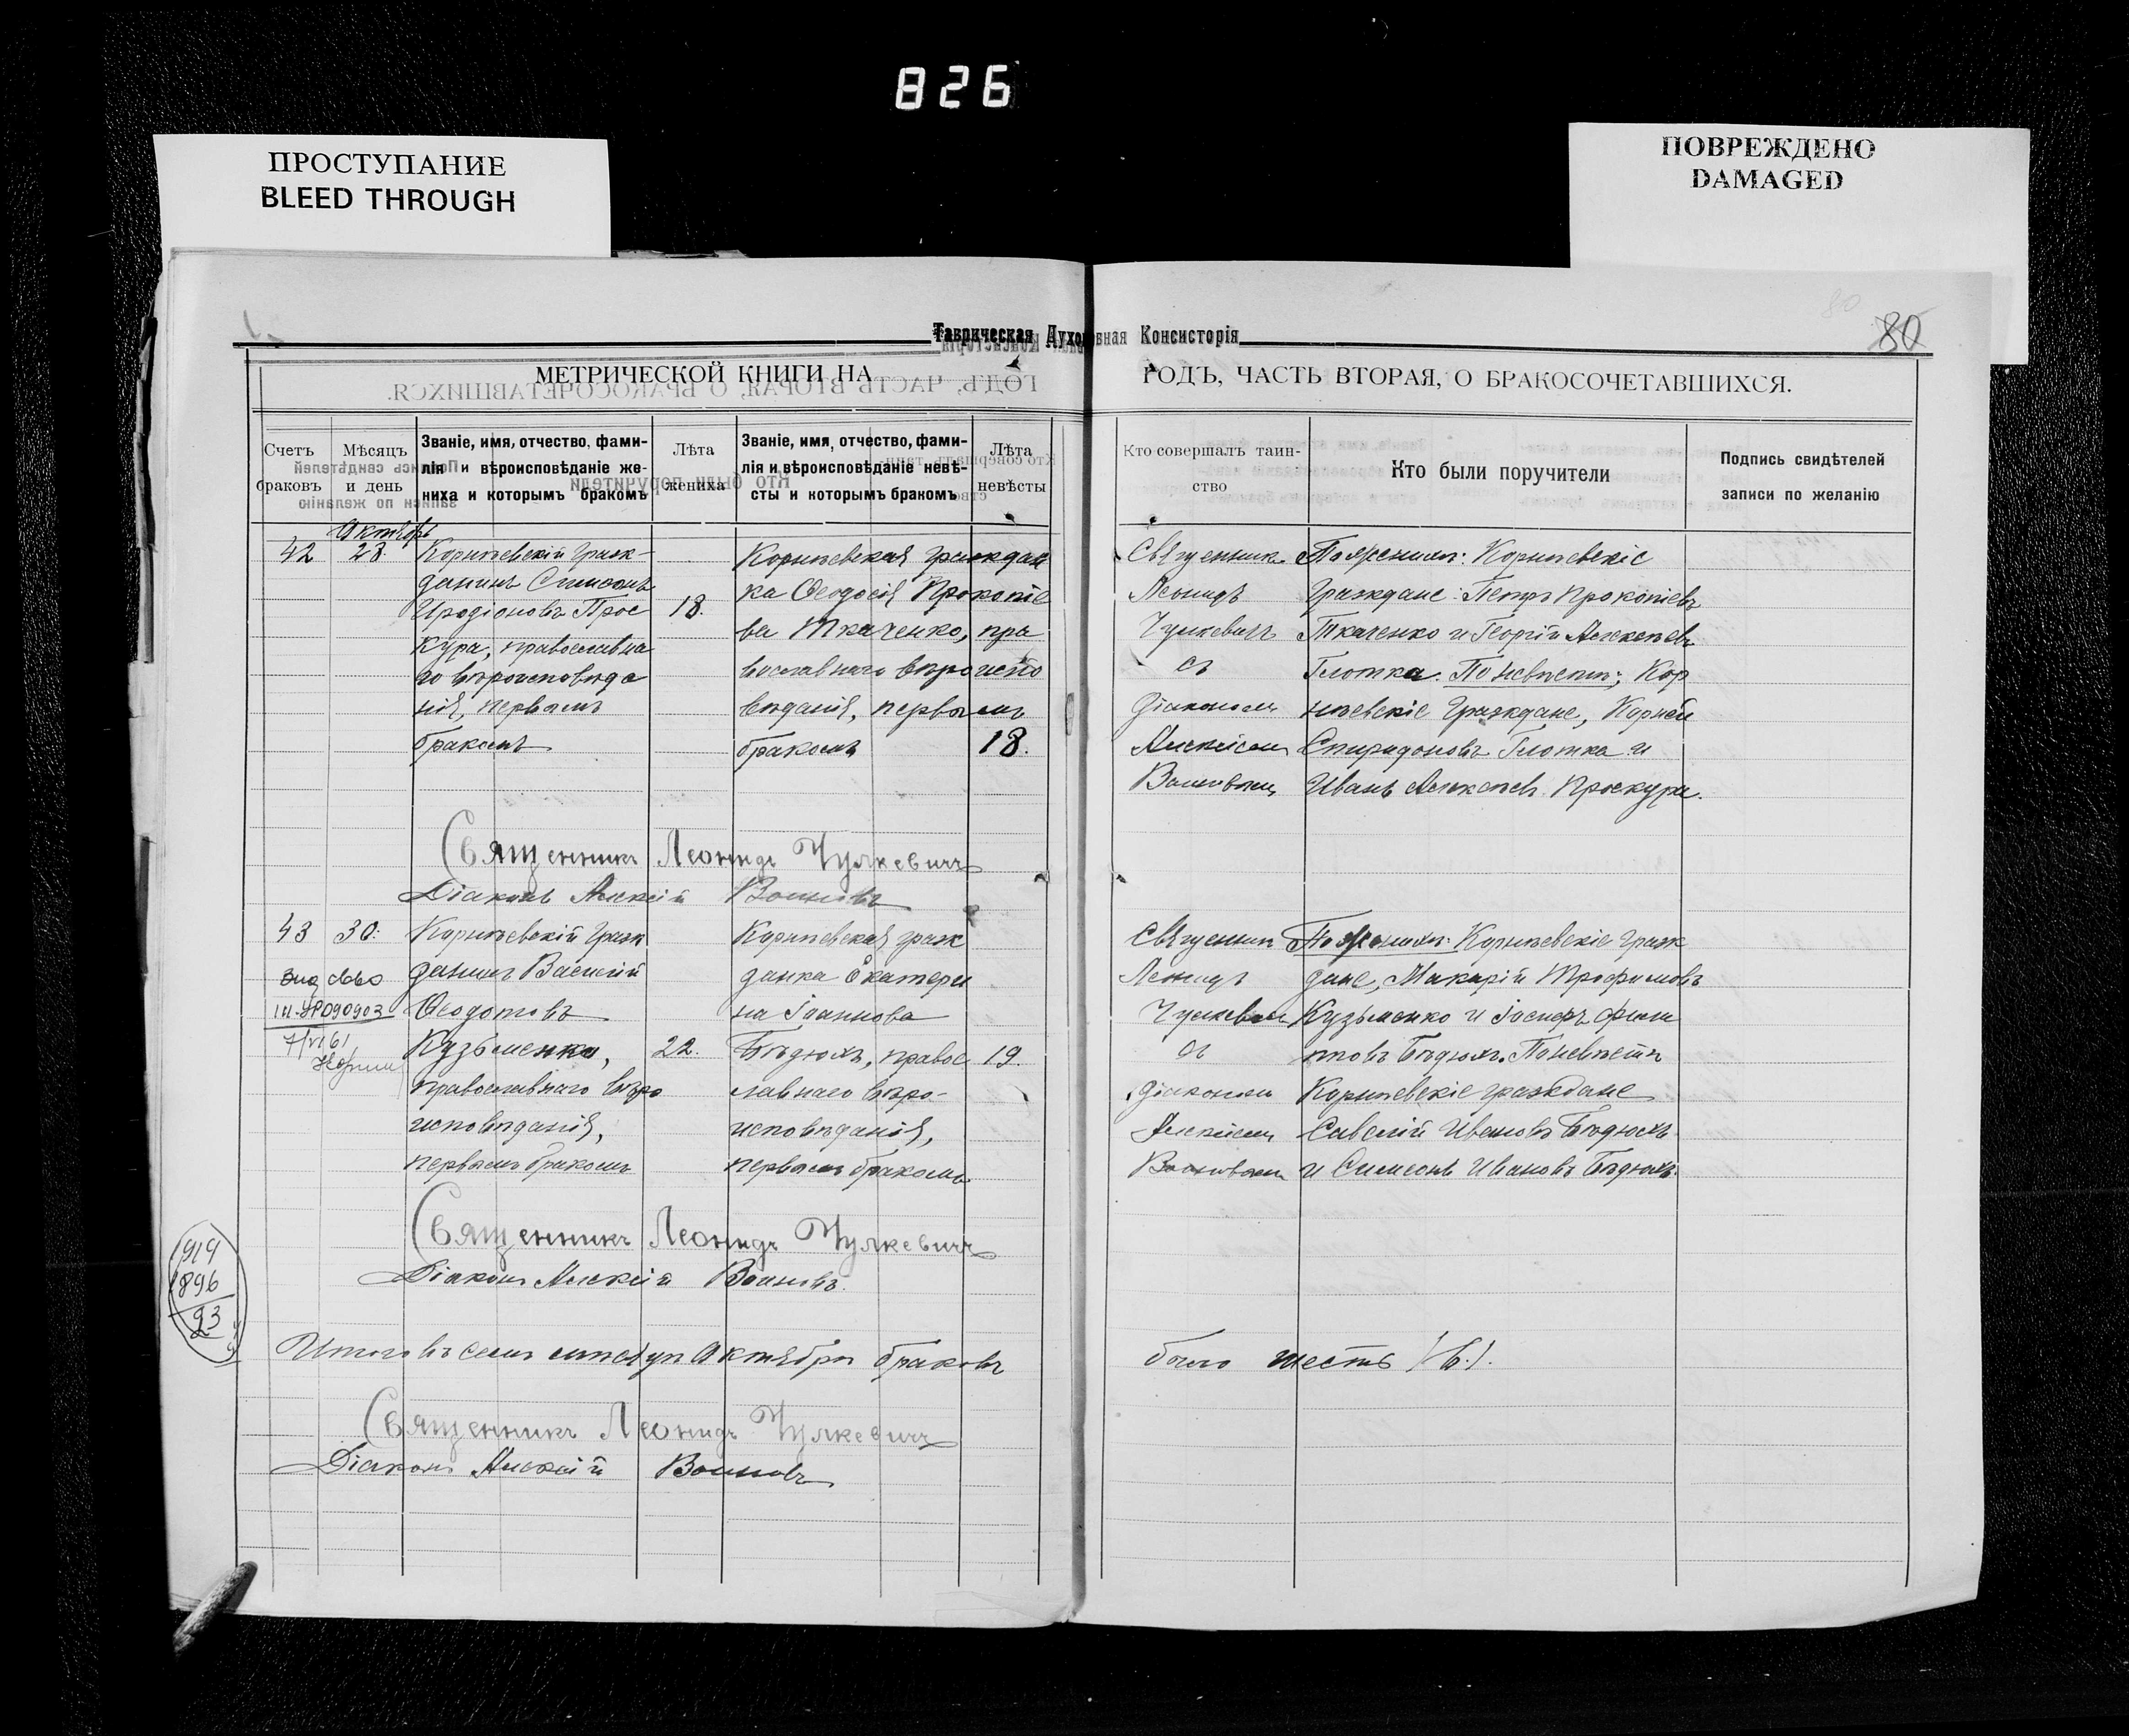 826
ПРОСТУПАНИЕ
BLEED THROUGH
ПОВРЕЖДЕНО
DAMAGED
80
Таврическая Духовная Консисторія
МЕТРИЧЕСКОЙ КНИГИ НА
ГОДЪ, ЧАСТЬ ВТОРАЯ, О БРАКОСОЧЕТАВШИХСЯ.
Счетъ браковъ
Мѣсяцъ и день
Званіе, имя, отчество, фами-
лія и вѣроисповѣданіе же-
ниха и которымъ бракомъ
Лѣта жениха
Званіе, имя, отчество, фами-
лія и вѣроисповѣданіе невѣ-
сты и которымъ бракомъ
Лѣта невѣсты
Кто совершалъ таин-
ство
Кто были поручители
Подпись свидѣтелей
записи по желанію
Октябрь
42
28.
Корнѣевскій граж-
данинъ Симеонъ
Иродіоновъ Прос
кура, православна
го вѣроисповѣда
нія, первымъ
бракомъ
18.
Корнѣевская граждан
ка Ѳеодосія Прокопіе
ва Ткаченко, пра
вославнаго вѣроиспо
вѣданія, первымъ
бракомъ
18.
Священникъ
Леонидъ
Чулкевичъ
съ
діакономъ
Алексіемъ
Воиновымъ
По женихѣ: Корнѣевскіе
граждане: Петръ Прокопіевъ
Ткаченко и Георгій Алексѣевъ
Глотка. По невѣстѣ: Кор
нѣевскіе граждане, Корней
Спиридоновъ Глотка и
Иванъ Алексѣевъ Проскура.
Священникъ Леонидъ Чулкевичъ
Діаконъ Алексій Воиновъ
43
30.
Корнѣевскій граж
данинъ Василій
Ѳеодотовъ
Кузьменко,
православнаго вѣро
исповѣданія,
первымъ бракомъ
22.
Корнѣевская граж
данка Екатери
на Іоаннова
Бѣдюхъ, правос
лавнаго вѣро-
исповѣданія,
первымъ бракомъ
19.
090903
7/VI 61
Священник
Леонидъ
Чулкевич
съ
діакономъ
Алексіемъ
Воиновымъ
По женихѣ: Корнѣевскіе граж
дане, Макарій Трофимовъ
Кузьменко и Іосифъ Фили
пповъ Бѣдюхъ. По невѣстѣ
Корнѣевскіе граждане
Савелій Ивановъ Бѣдюхъ
и Симеонъ Ивановъ Бѣдюхъ.
Священникъ Леонидъ Чулкевичъ
Діаконъ Алексій Воиновъ.
1919
1896
23
Итого въ семъ мѣсяцѣ Октябрѣ браковъ
было шесть (6.).
Священникъ Леонидъ Чулкевичъ
Діаконъ Алексій Воиновъ